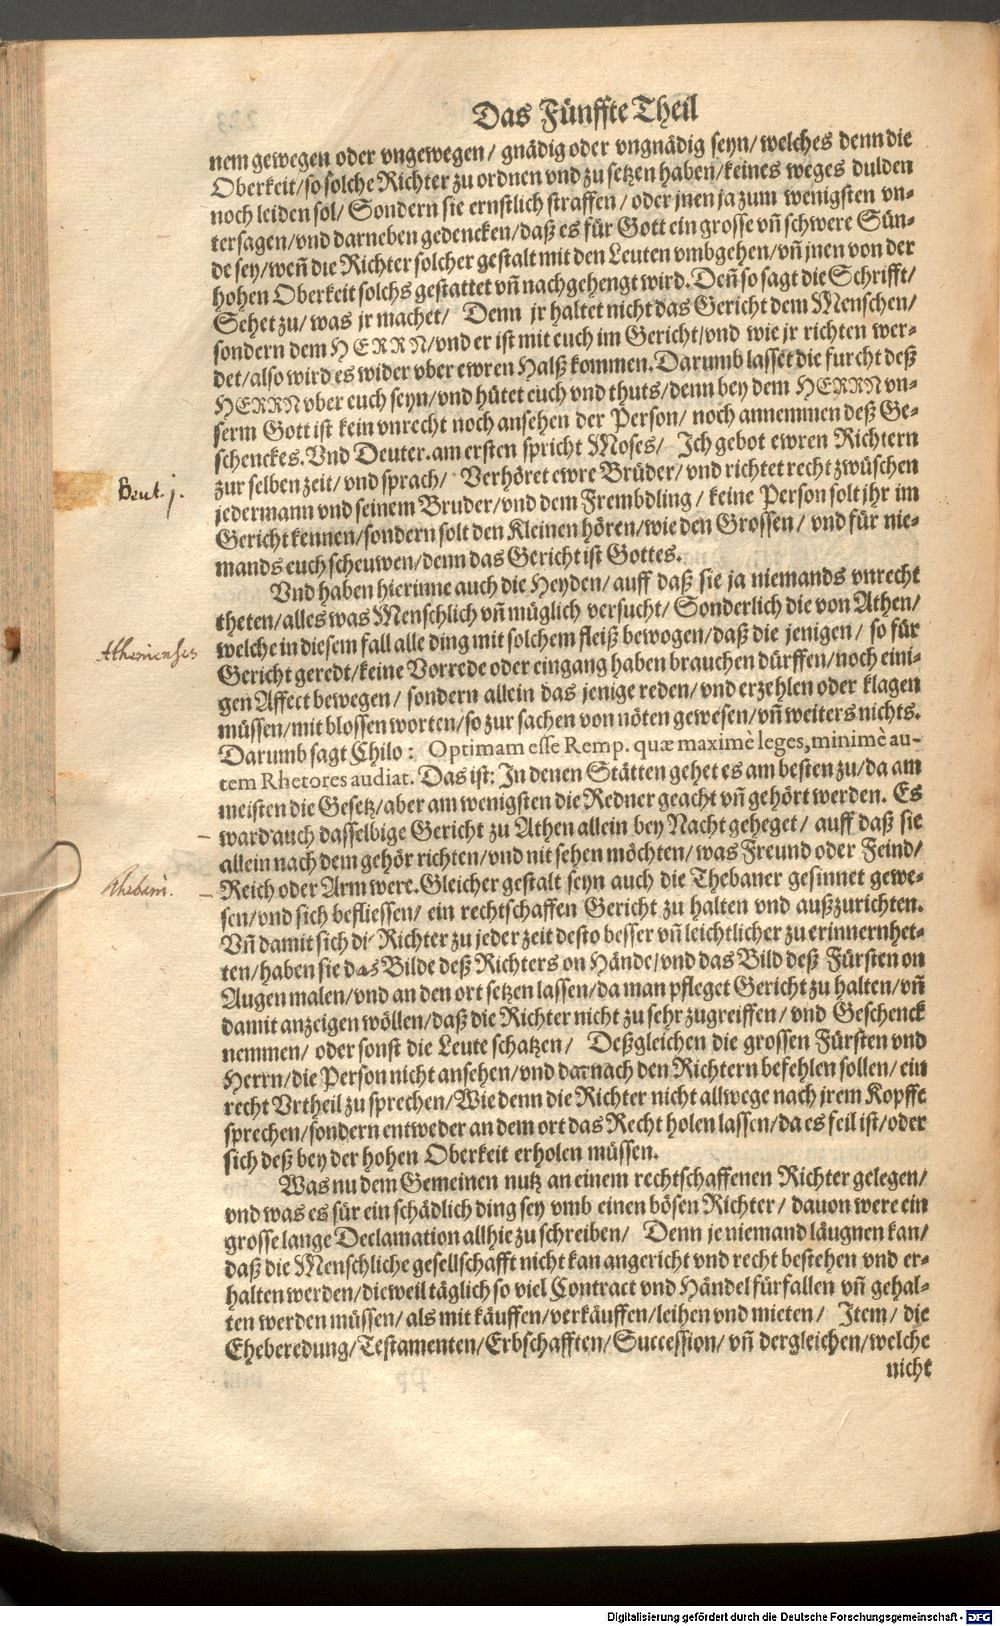 Das Fünffte Theil
nem gewegen oder vngewegen/ gnädig oder vngnädig seyn/ welches denn die
Oberkeit/ so solche Richter zu ordnen vnd zu setzen haben/ keines weges dulden
noch leiden sol/ Sondern sie ernstlich straffen/ oder jnen ja zum wenigsten vn-
tersagen/ vnd darneben gedencken/ daß es für Gott ein grosse vñ schwere Sün-
de sey/ weñ die Richter solcher gestalt mit den Leuten vmbgehen/ vñ jnen von der
hohen Oberkeit solchs gestattet vñ nachgehengt wird. Deñ so sagt die Schrifft/
Sehet zu/ was jr machet/ Denn jr haltet nicht das Gericht dem Menschen/
sondern dem HERRN/ vnd er ist mit euch im Gericht/ vnd wie jr richten wer-
det/ also wird es wider vber ewren Halß kommen. Darumb lasset die furcht deß
HERRN vber euch seyn/ vnd hütet euch vnd thuts/ denn bey dem HERRN vn-
serm Gott ist kein vnrecht noch ansehen der Person/ noch annemmen deß Ge-
schenckes. Vnd Deuter. am ersten spricht Moses/ Ich gebot ewren Richtern
zur selben zeit/ vnd sprach/ Verhöret ewre Brüder/ vnd richtet recht zwüschen
Deut. j.
jedermann vnd seinem Bruder/ vnd dem Frembdling/ keine Person solt jhr im
Gericht kennen/ sondern solt den Kleinen hören/ wie den Grossen/ vnd für nie-
mands euch scheuwen/ denn das Gericht ist Gottes.
Vnd haben hierinne auch die Heyden/ auff daß sie ja niemands vnrecht
theten/ alles was Menschlich vñ müglich versucht/ Sonderlich die von Athen/
Athenienses
welche in diesem fall alle ding mit solchem fleiß bewogen/ daß die jenigen/ so für
Gericht geredt/ keine Vorrede oder eingang haben brauchen dürffen/ noch eini-
gen Affect bewegen/ sondern allein das jenige reden/ vnd erzehlen oder klagen
müssen/ mit blossen worten/ so zur sachen von nöten gewesen/ vñ weiters nichts.
Darumb sagt Chilo: Optimam esse Remp. quæ maximè leges, minimè au-
tem Rhetores audiat. Das ist: In denen Stätten gehet es am besten zu/ da am
meisten die Gesetz/ aber am wenigsten die Redner geacht vñ gehört werden. Es
ward auch dasselbige Gericht zu Athen allein bey Nacht geheget/ auff daß sie
allein nach dem gehör richten/ vnd nit sehen möchten/ was Freund oder Feind/
Thebani.
Reich oder Arm were. Gleicher gestalt seyn auch die Thebaner gesinnet gewe-
sen/ vnd sich befliessen/ ein rechtschaffen Gericht zu halten vnd außzurichten.
Vñ damit sich die Richter zu jeder zeit desto besser vñ leichtlicher zu erinnern het-
ten/ haben sie das Bilde deß Richters on Hände/ vnd das Bild deß Fürsten on
Augen malen/ vnd an den ort setzen lassen/ da man pfleget Gericht zu halten/ vñ
damit anzeigen wöllen/ daß die Richter nicht zu sehr zugreiffen/ vnd Geschenck
nemmen/ oder sonst die Leute schatzen/ Deßgleichen die grossen Fürsten vnd
Herrn/ die Person nicht ansehen/ vnd darnach den Richtern befehlen sollen/ ein
recht Vrtheil zu sprechen/ Wie denn die Richter nicht allwege nach jrem Kopffe
sprechen/ sondern entweder an dem ort das Recht holen lassen/ da es feil ist/ oder
sich deß bey der hohen Oberkeit erholen müssen.
Was nu dem Gemeinen nutz an einem rechtschaffenen Richter gelegen/
vnd was es für ein schädlich ding sey vmb einen bösen Richter/ dauon were ein
grosse lange Declamation allhie zu schreiben/ Denn je niemand läugnen kan/
daß die Menschliche gesellschafft nicht kan angericht vnd recht bestehen vnd er-
halten werden/ dieweil täglich so viel Contract vnd Händel fürfallen vñ gehal-
ten werden müssen/ als mit käuffen/ verkäuffen/ leihen vnd mieten/ Item/ die
Eheberedung/ Testamenten/ Erbschafften/ Succession/ vñ dergleichen/ welche
nicht
Digitalisierung gefördert durch die Deutsche Forschungsgemeinschaft - DFG